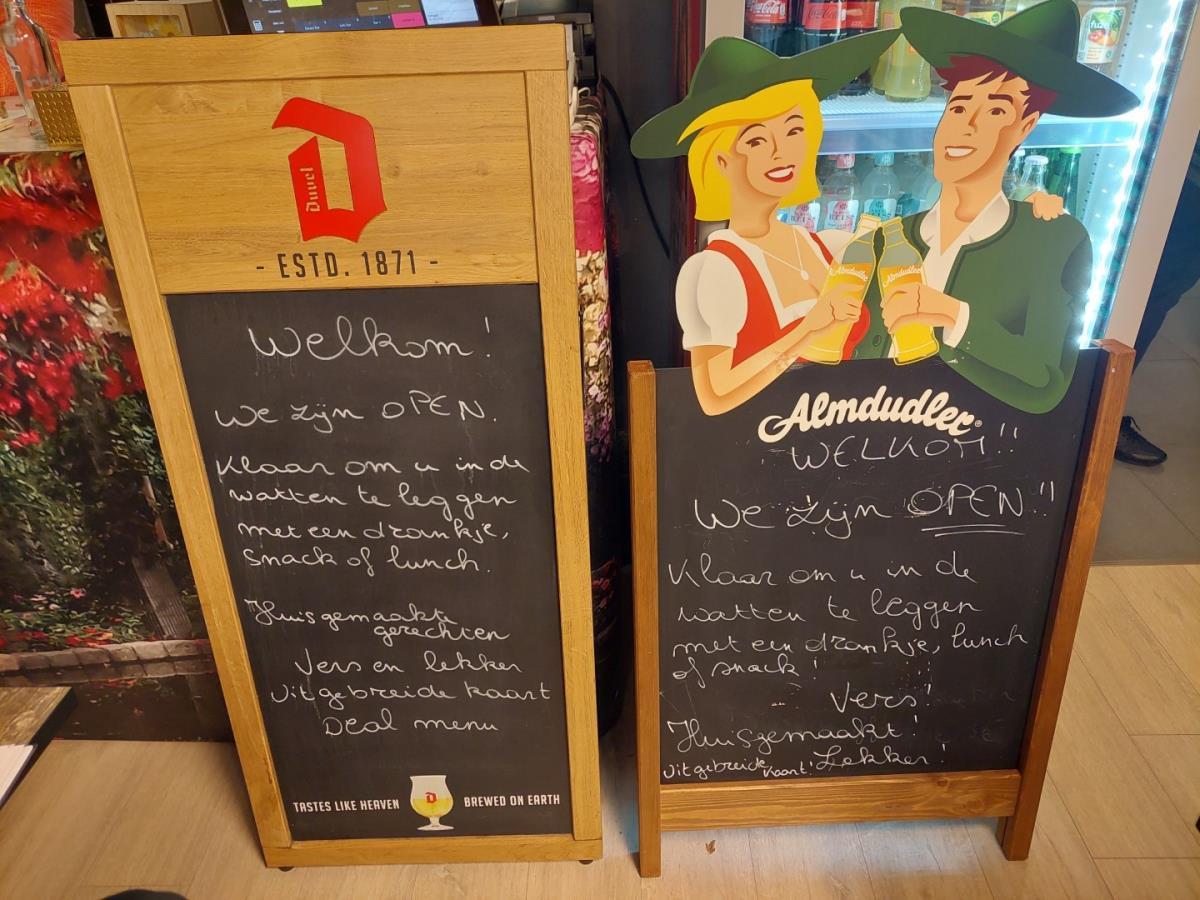 Duvel
- ESTD. 1871 -
Welkom!
We zijn OPEN.
Klaar om u in de
watten te leggen
met een drankje,
snack of lunch.
Huisgemaakte
gerechten
Vers en lekker
Uitgebreide kaart
Deal menu
TASTES LIKE HEAVEN BREWED ON EARTH
Almdudler
Almdudler
Almdudler®
WELKOM!!
We zijn OPEN!!
Klaar om u in de
watten te leggen
met een drankje, lunch
of snack!
Vers!
Huisgemaakt!
Uitgebreide kaart! Lekker!
Coca-Cola
fuze